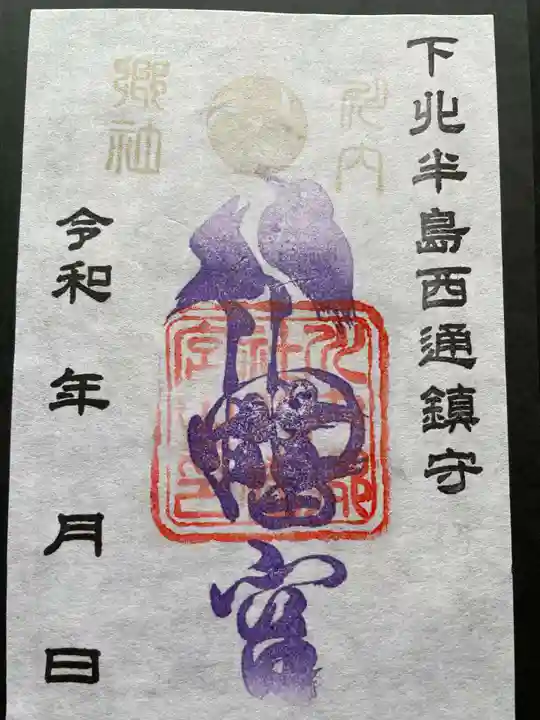 下北半島西通鎮守
川内
八幡宮
郷社
令和 年 月 日